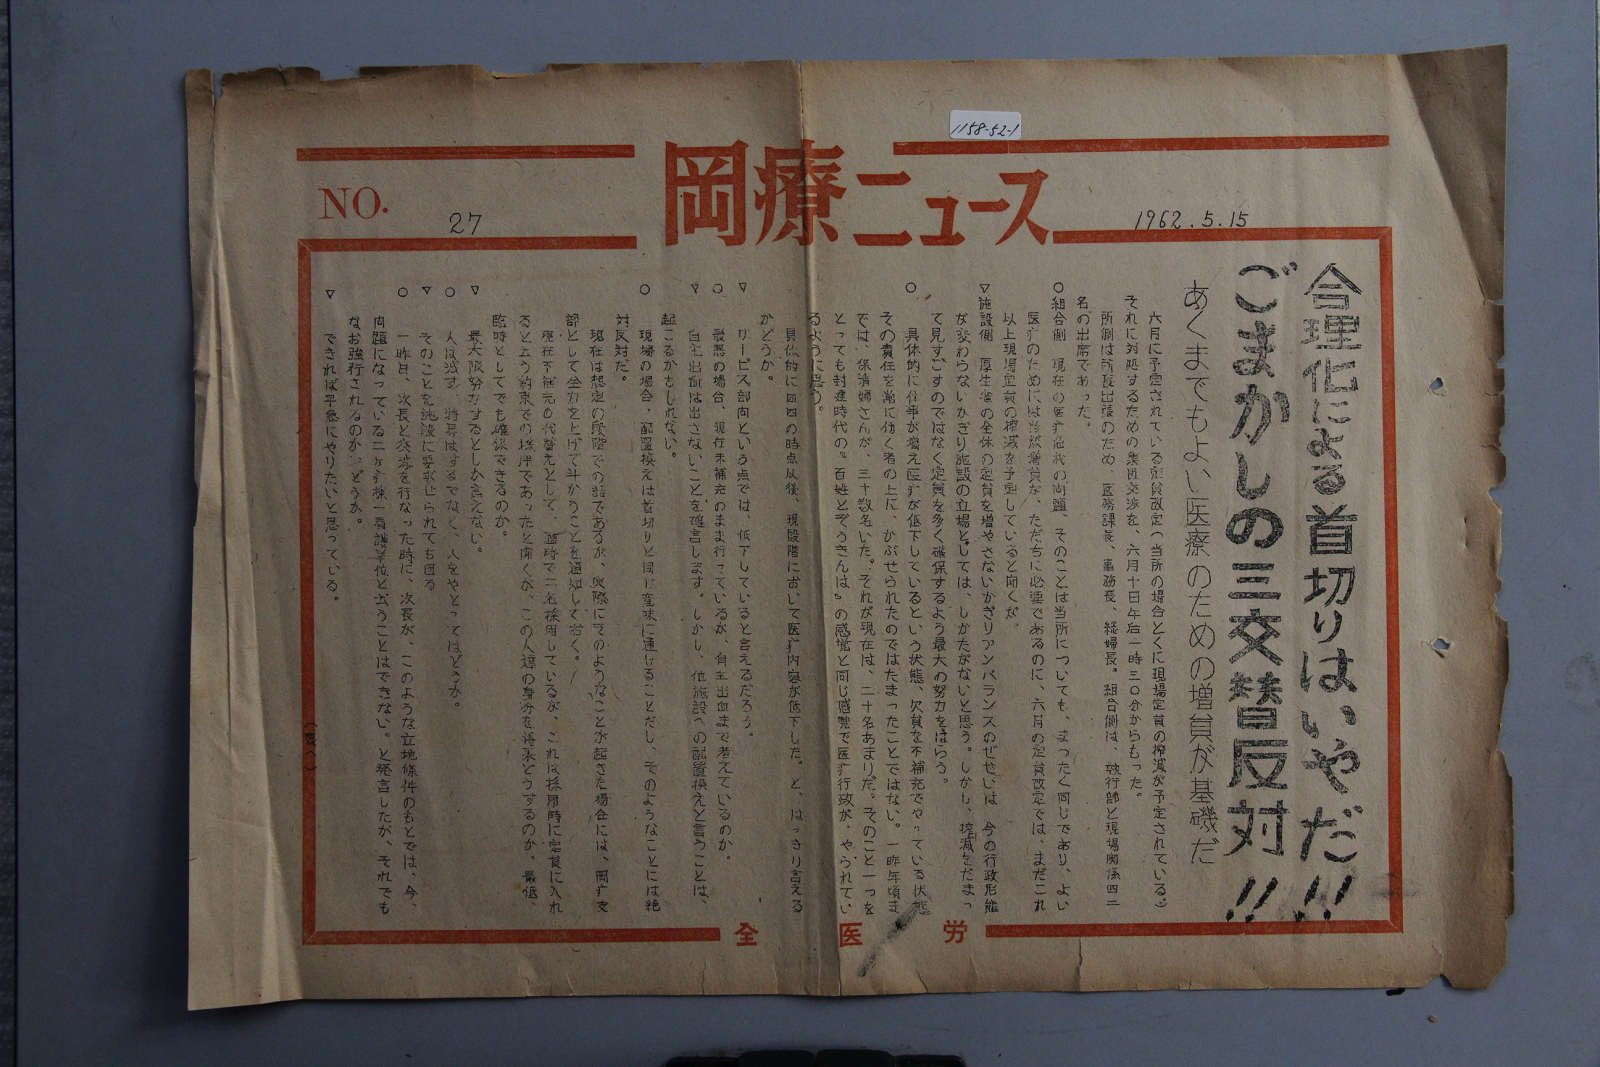 1158-52-1
NO. 27
岡療ニュース
1962.5.15
合理化による首切りはいやだ!!
ごまかしの三交替反対!!
あくまでもよい医療のための増員が基礎だ
六月に予定されている定員改定(当所の場合とくに現場定員の削減が予定されている。)
それに対処するための集団交渉を、六月十日午后一時三〇分からもった。
所側は所長出張のため、医務課長、事務長、総婦長。組合側は、執行部と現場関係四二
名の出席であった。
○組合側 現在の医疗危机の问題、そのことは当所についても、まったく同じであり、よい
医疗のためには 増員が、ただちに必要であるのに、六月の定員改定では、まだこれ
以上現場定員の削減を予定していると聞くが。
▽施設側 厚生省の全体の定員を増やさないかぎりアンバランスのぜせいは 今の行政形態
が変わらないかぎり施設の立場としては、しかたがないと思う。しかし、削減をだまっ
て見すごすのではなく定員を多く確保するよう最大の努力をはらう。
○ 具体的に仕事が増え医疗が低下しているという状態、欠員を不補充でやっている状態
その責任を 働く者の上に、かぶせられたのではたまったことではない。一昨年頃ま
では、保清婦さんが、三十数名いた。それが現在は、二十名あまりだ。そのこと一つを
とっても封建時代の〝百姓とぞうきんは〟の感覚と同じ感覚で医疗行政が、やられてい
るように思う。
具体的に 四の時点以後、現段階において医疗内容が低下した。と、はっきり言える
かどうか。
▽ サービス部向という点では、低下していると言えるだろう。
○ 最悪の場合、現在未補充のまま行っているが、自主出血まで考えているのか。
▽ 自主出血は出さないことを確言します。しかし、他施設への配置換えと言うことは、
起こるかもしれない。
○ 現場の場合・配置換えは首切りと同じ意味に通じることだし、そのようなことには絶
対反対だ。
現在は想定の段階での話であるが、実際にそのようなことが起きた場合には、岡疗支
部として全力を上げて斗かうことを通知しておく。
現在 の代替えとして、臨時で二名採用しているが、これは採用時に定員に入れ
ると云う約束での採用であったと聞くが、この人達の身分を将来どうするのか。最低、
臨時としてでも確保できるのか。
▽ 最大限努力するとしか言えない。
○ 人は減す、 はするでなく、人をやとってはどうか。
▽ そのことを施設に要求せられても困る
○ 一昨日、次長と交渉を行なった時に、次長が、このような立地條件のもとでは、今、
问題になっている二ケ病棟一看護単位と云うことはできない。と発言したが、それでも
なお強行されるのか、どうか。
▽ できれば早急にやりたいと思っている。
全医労